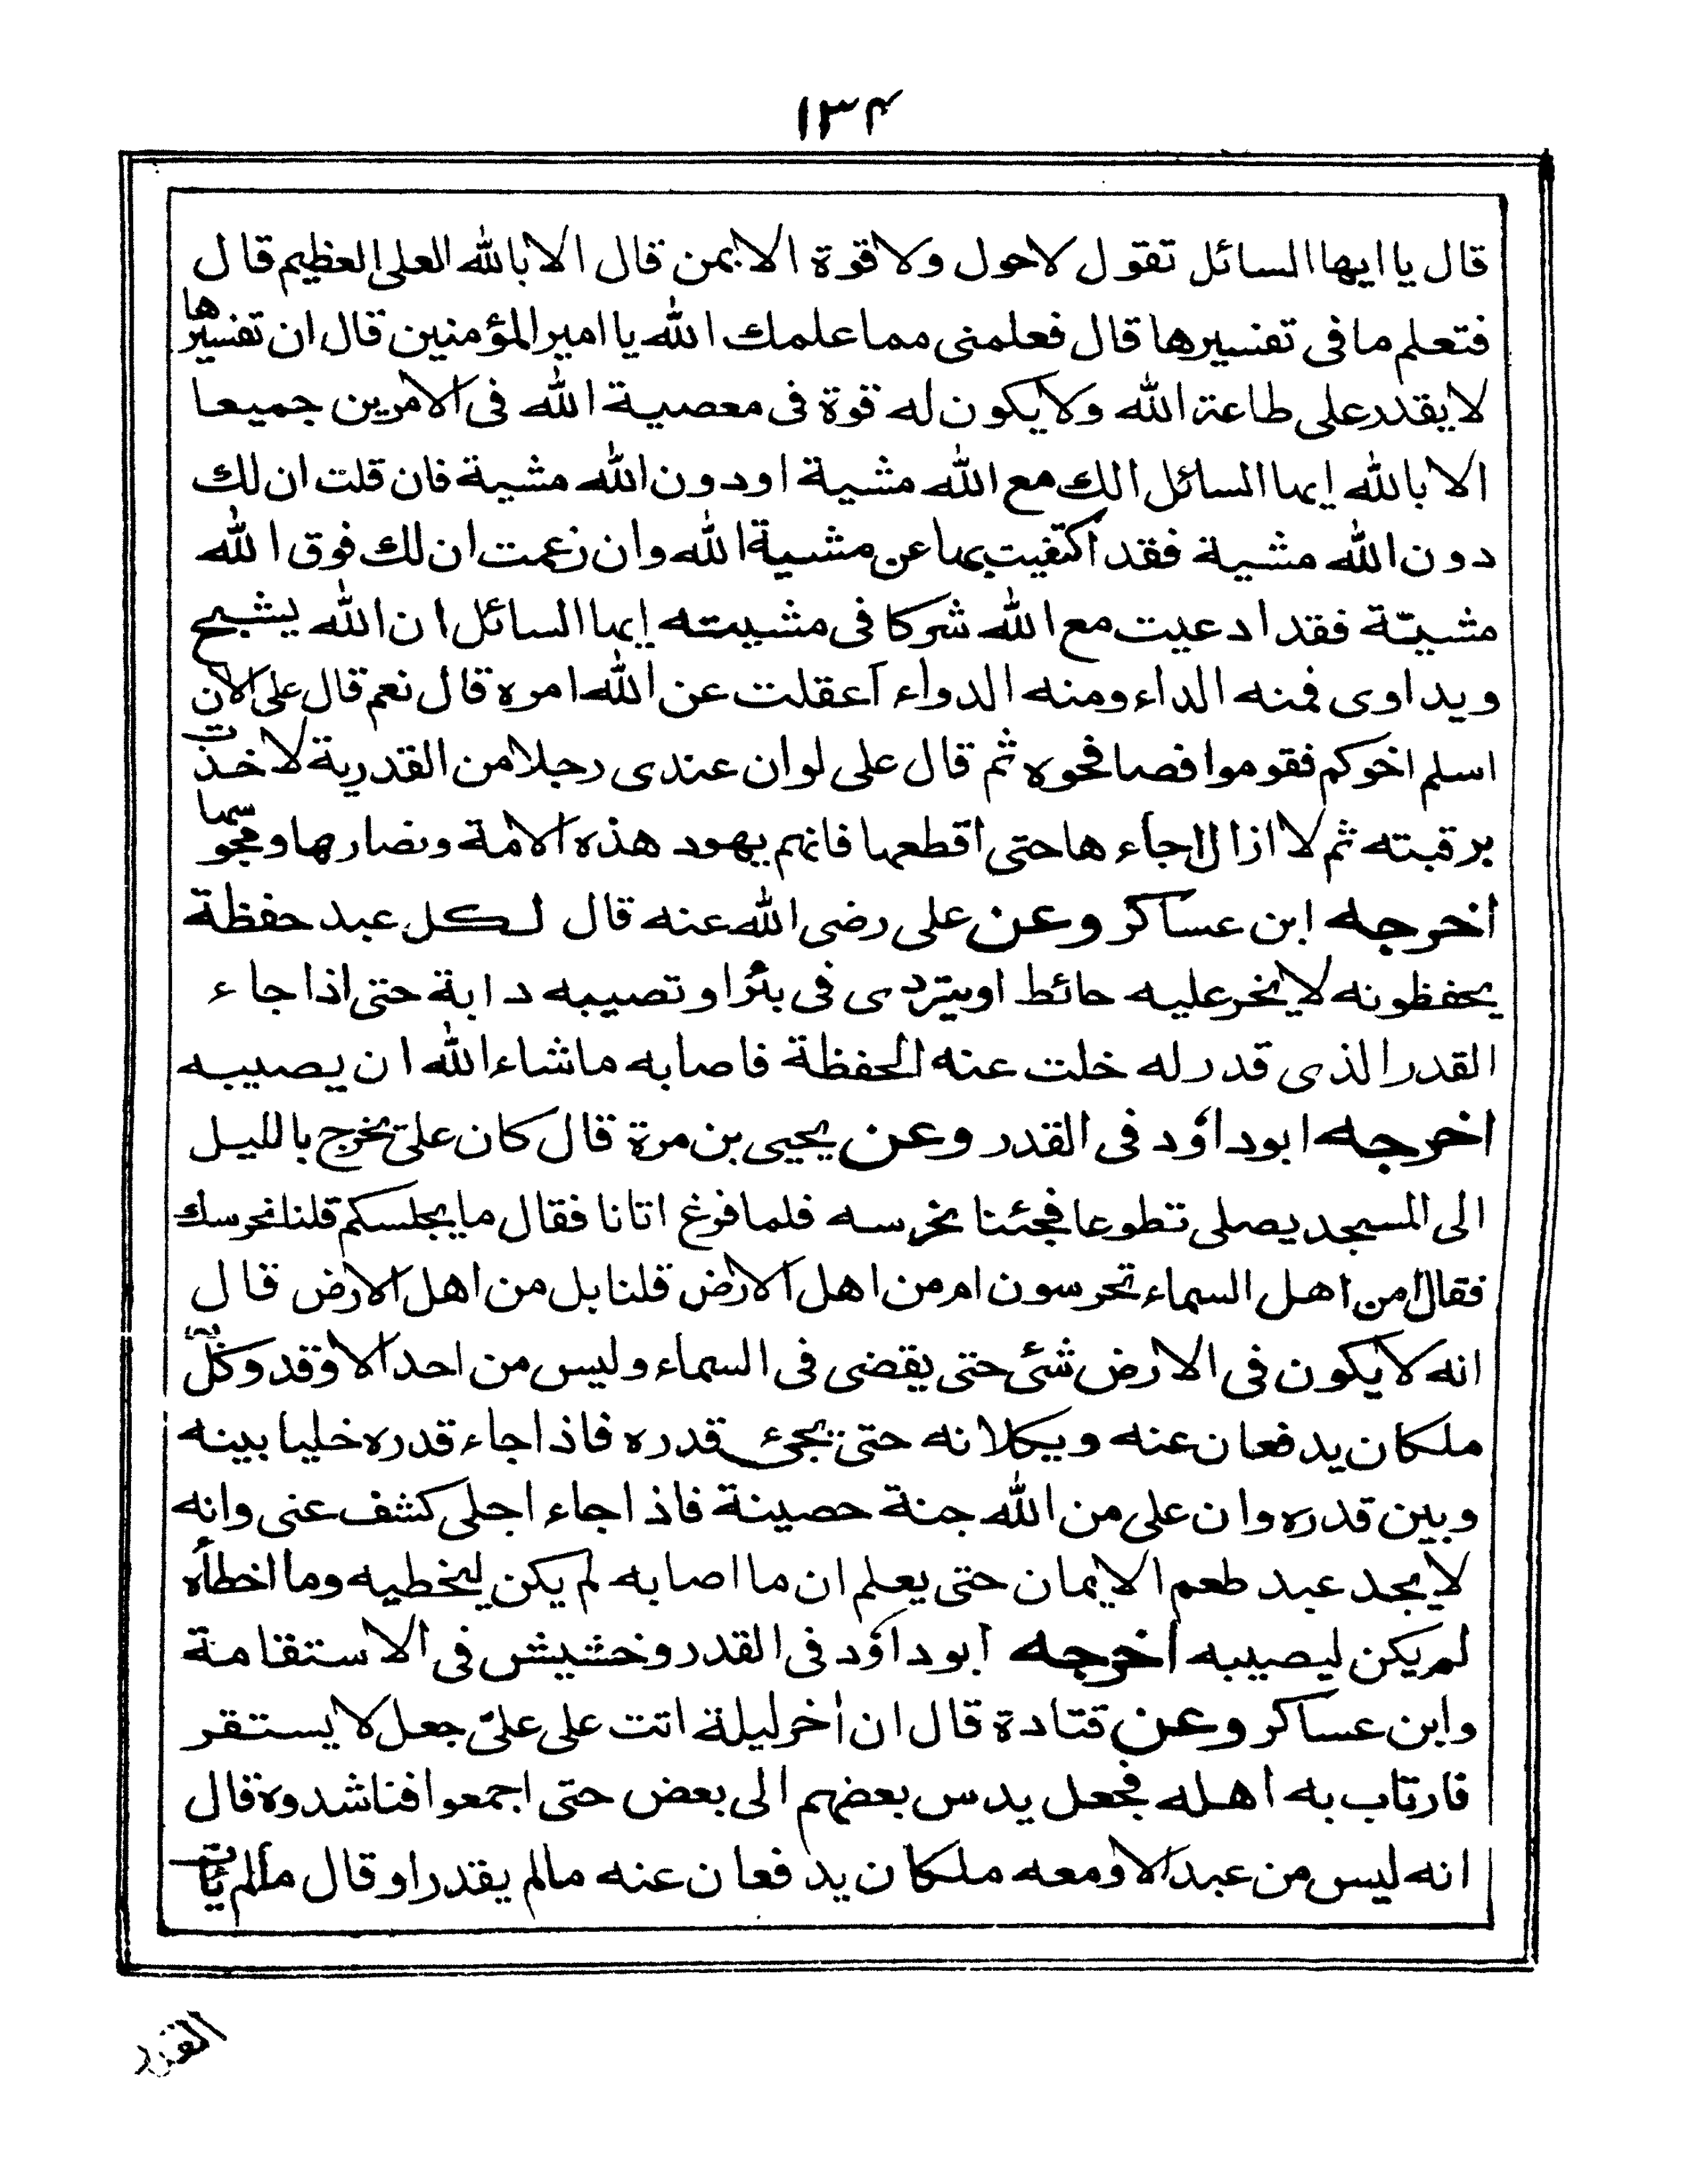 ١٣۴
قال يا ايها السائل تقول لاحول ولا قوة الا بمن قال الا بالله العلى العظيم قال
فتعلم ما فى تفسيرها قال فعلمنى مما علمك الله يا امير المؤمنين قال ان تفسيرها
لا يقدر على طاعة الله ولا يكون له قوة فى معصية الله فى الامرين جميعا
الا بالله ايها السائل الك مع الله مشية او دون الله مشية فان قلت ان لك
دون الله مشية فقد اكتفيت بها عن مشية الله وان زعمت ان لك فوق الله
مشيّة فقد ادعيت مع الله شركا فى مشيته ايها السائل ان الله يشبح
ويداوى فمنه الداء ومنه الدواء أعقلت عن الله امره قال نعم قال على الآن
اسلم اخوكم فقوموا فصافحوه ثم قال على لو ان عندى رجلا من القدرية لاخذت
برقبته ثم لا ازال اجاء ها حتى اقطعها فانهم يهود هذه الامة ونصارها ومجوسها
اخرجه ابن عساكر وعن على رضى الله عنه قال لكل عبد حفظة
يحفظونه لا يخر عليه حائط او يتردى فى بئر او تصيبه دابة حتى اذا جاء
القدر الذى قدر له خلت عنه الحفظة فاصابه ماشاء الله ان يصيبه
اخرجه ابو داؤد فى القدر وعن يحيى بن مرة قال كان علىّ يخرج بالليل
الى المسجد يصلى تطوعا فجئنا نحرسه فلما فرغ اتانا فقال ما يجلسكم قلنا نحرسك
فقال امن اهل السماء تحرسون ام من اهل الارض قلنا بل من اهل الارض قال
انه لا يكون فى الارض شئ حتى يقضى فى السماء وليس من احد الا وقد وكّل به
ملكان يدفعان عنه ويكلانه حتى يجئ قدره فاذا جاء قدره خليا بينه
وبين قدره وان على من الله جنة حصينة فاذا جاء اجلى كشف عنى وانه
لا يجد عبد طعم الايمان حتى يعلم ان ما اصابه لم يكن ليخطيه وما اخطأه
لم يكن ليصيبه اخرجه ابو داؤد فى القدر وخشيش فى الاستقامة
وابن عساكر وعن قتادة قال ان اٰخر ليلة اتت على علىّ جعل لا يستقر
فارتاب به اهله فجعل يدس بعضهم الى بعض حتى اجمعوا فناشدوه قال
انه ليس من عبد الا ومعه ملكان يدفعان عنه مالم يقدر او قال مالم يأت
القدر